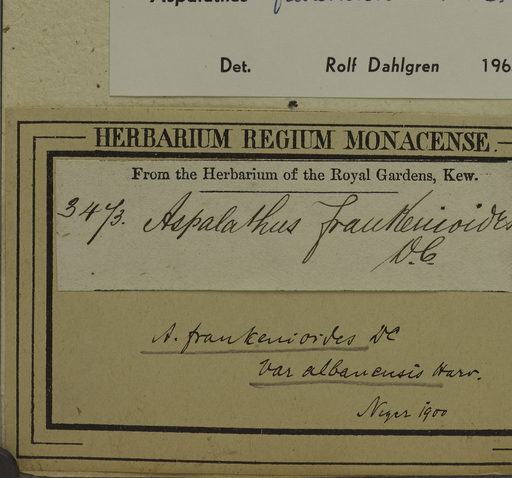 Aspalathus
Det. Rolf Dahlgren 196
HERBARIUM REGIUM MONACENSE.
From the Herbarium of the Royal Gardens, Kew.
3473. Aspalathus frankenioides
D.C.
A. frankenioides DC
Var albanensis Harv.
Neger 1900